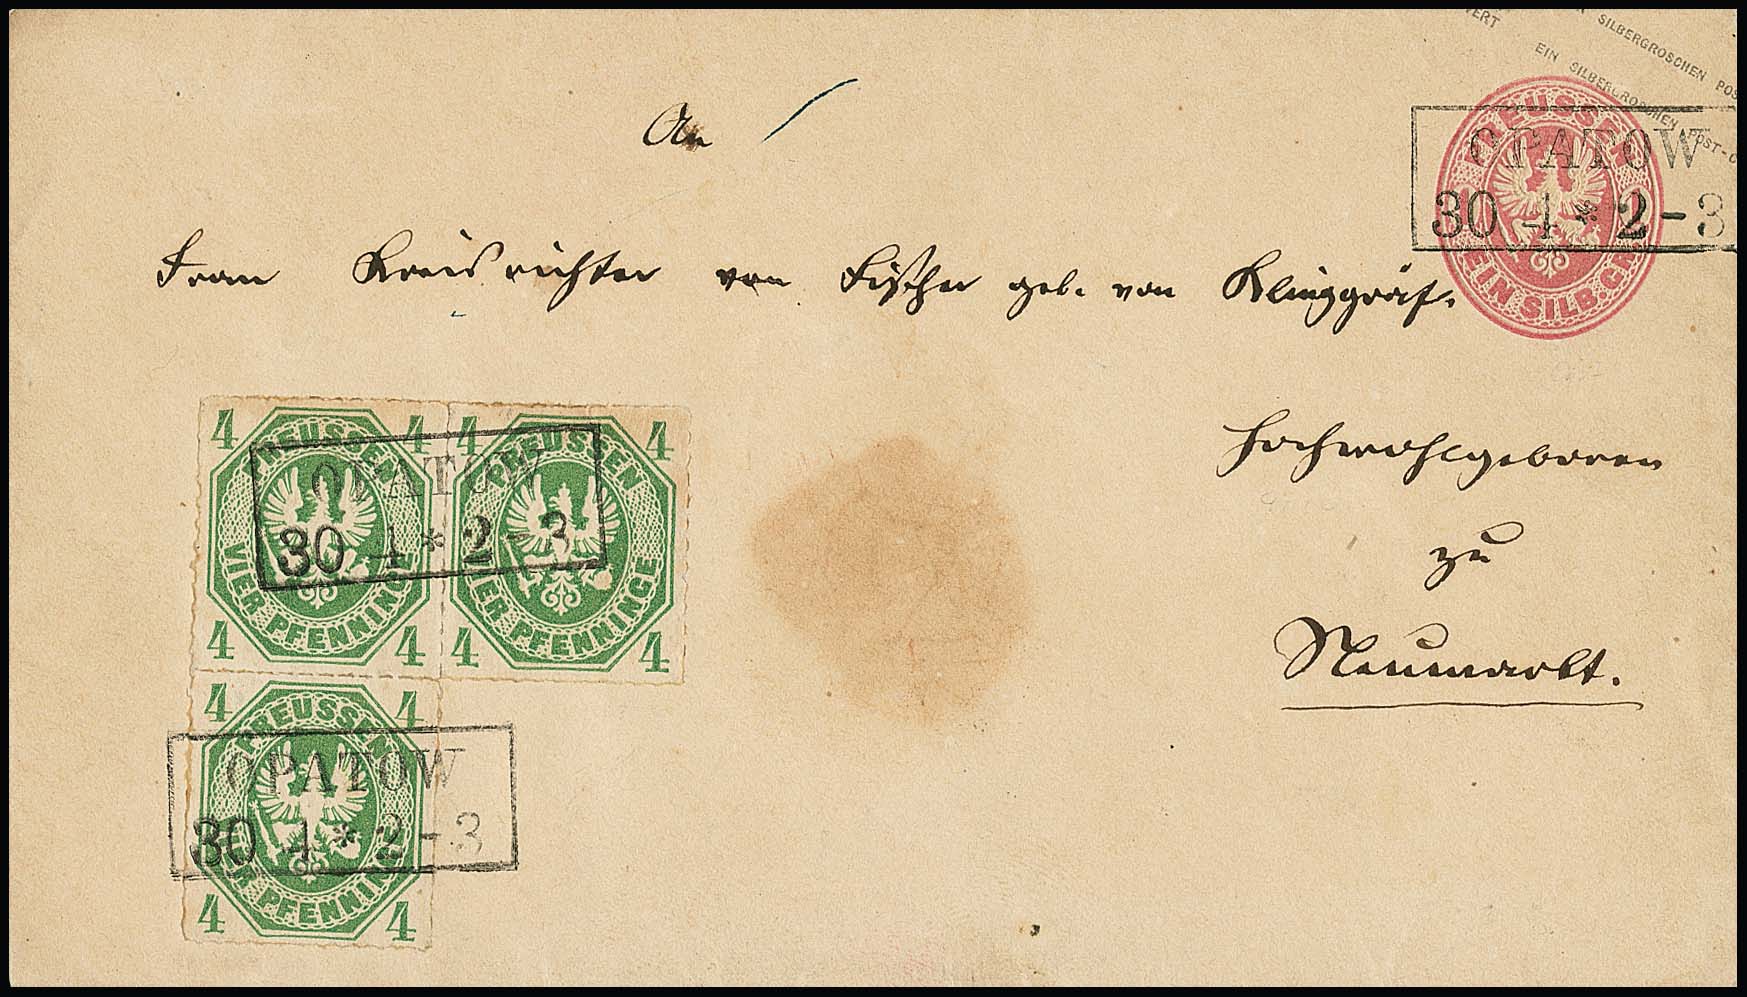 SILBERGROSCHEN POS
VERT
EIN SILBERGROSCHEN POST-C
PREUSSEN
EIN SILB.GR.
OPATOW
30 4 * 2-3
An
Frau Kreisrichter von Fischer geb. von Klinggräf.
Hochwohlgeboren
zu
Neumarkt.
4 4 4 4
PREUSSEN PREUSSEN
OPATOW
30 4 * 2-3
VIER PFENNINGE VIER PFENNINGE
4 4 4 4
4 4
PREUSSEN
OPATOW
30 4 * 2-3
VIER PFENNINGE
4 4